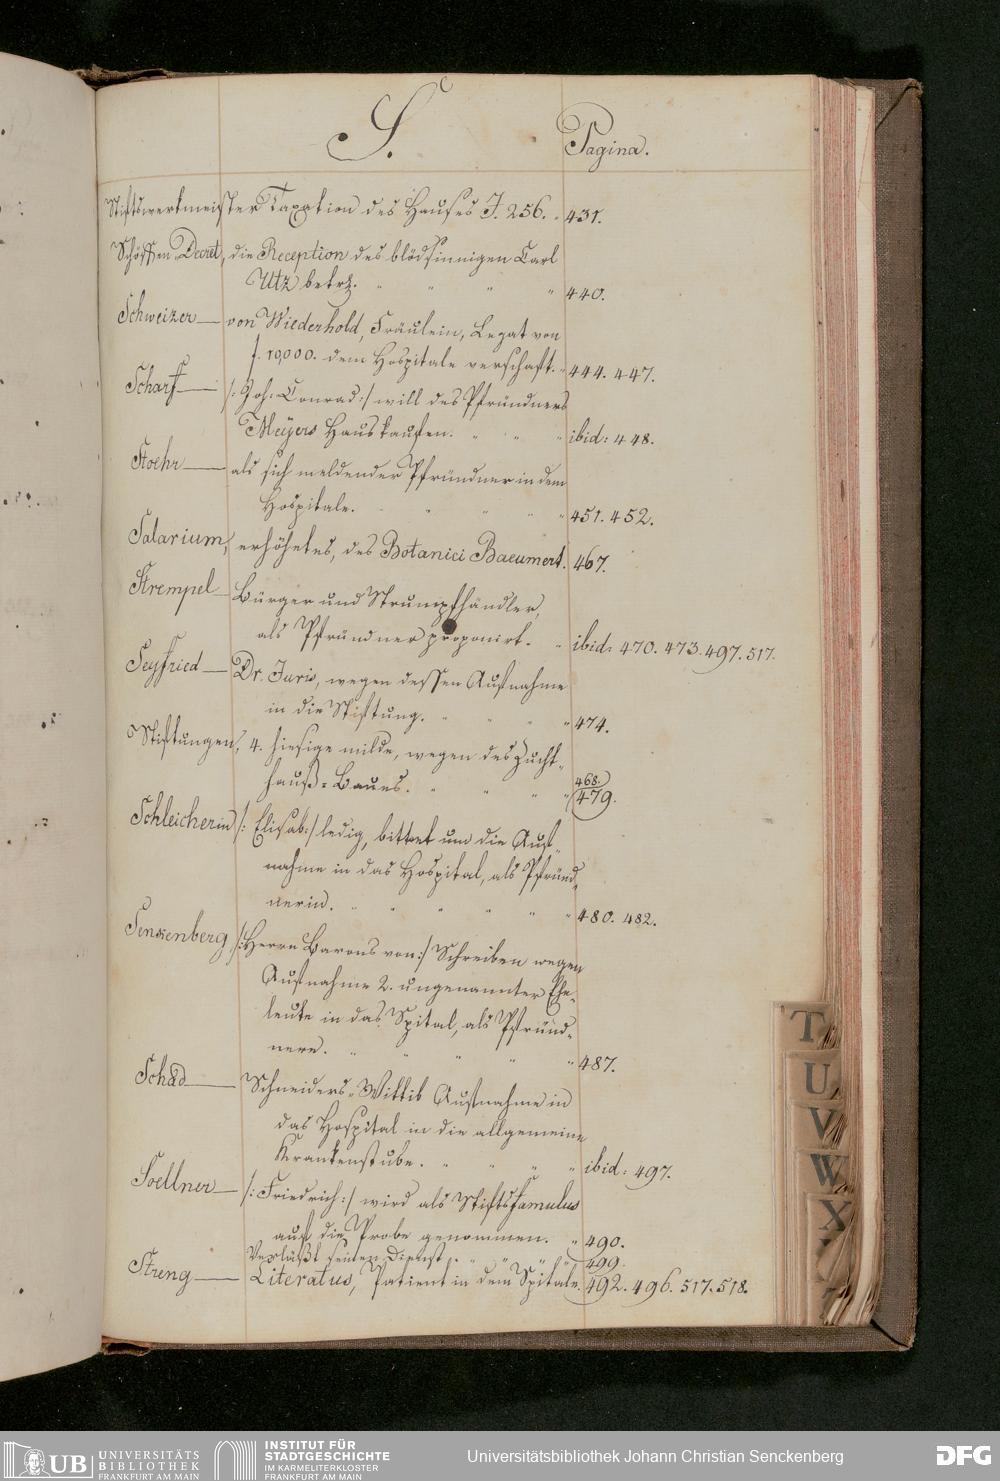 S.
Pagina.
Stiftswerkmeister Taxation des Hauses J. 256. 431.
Schöffen Decret, die Reception des blödsinnigen Carl
Utz betrf. 440.
Schweizer — von Wiederhold, Fräulein, Legat von
f. 10,000. dem Hospitale verschaft. 444. 447.
Scharff — /: Joh: Conrad :/ will des Pfründners
Meÿers Haus kaufen. ibid: 448.
Stoehr — als sich meldender Pfründner in dem
Hospitale. 451. 452.
Salarium, erhöhetes, des Botanici Baeumert. 467.
Strempel — Bürger und Strumpfhändler,
als Pfründner proponirt. ibid: 470. 473. 497. 517.
Seyfried — Dr. Juris, wegen dessen Aufnahme
in die Stiftung. 474.
Stiftungen, 4. hiesige milde, wegen des Zucht-
hauß-Baues. 468. 479.
Schleicherin /: Elisab: :/ ledig, bittet um die Auf-
nahme in das Hospital, als Pfründ-
nerin. 480. 482.
Senkenberg, /: Herrn Barons von :/ Schreiben wegen
Aufnahme 2. ungenannter Ehe-
leute in das Spital, als Pfründ-
nere. 487.
Schad — Schneiders-Wittib Aufnahme in
das Hospital in die allgemeine
Krankenstube. ibid: 497.
Soellner — /: Friedrich :/ wird als Stiftsfamulus
auf die Probe genommen. 490.
Verläßt seinen Dienst. 499.
Streng — Literatus, Patient in dem Spitale. 492. 496. 517. 518.
T
U
V
W
X
UB UNIVERSITÄTS
BIBLIOTHEK
FRANKFURT AM MAIN
INSTITUT FÜR
STADTGESCHICHTE
IM KARMELITERKLOSTER
FRANKFURT AM MAIN
Universitätsbibliothek Johann Christian Senckenberg
DFG